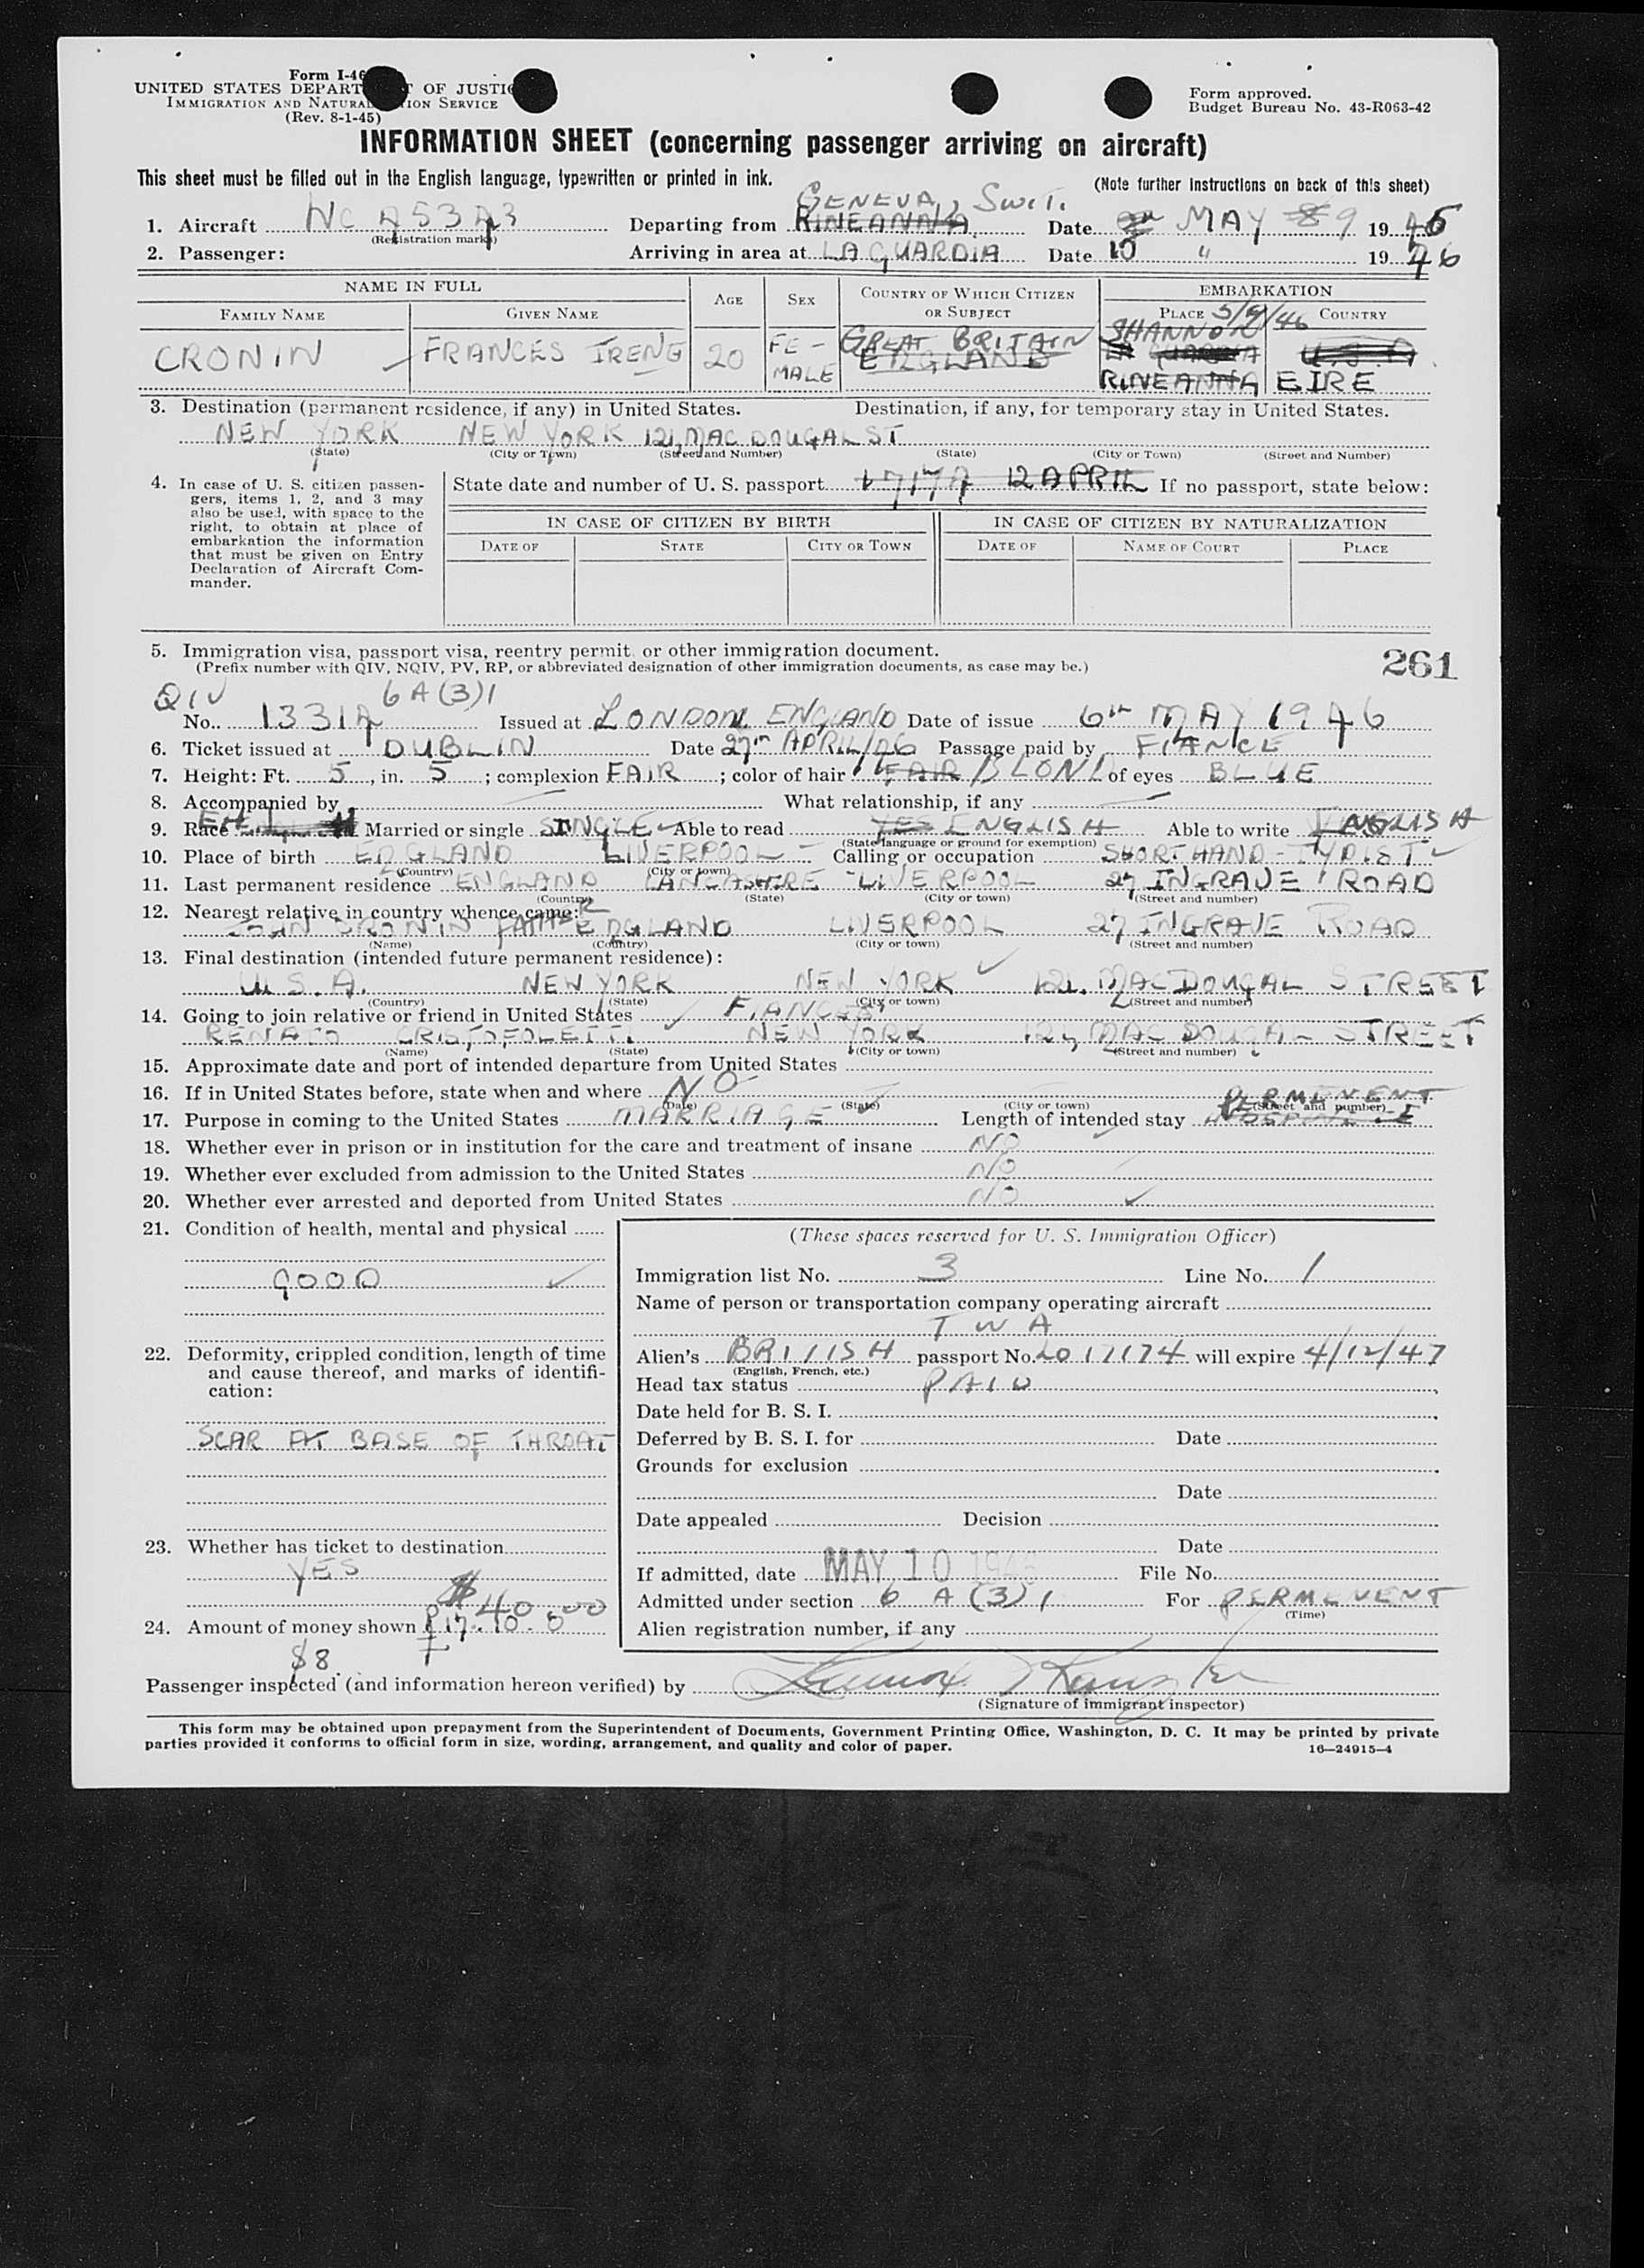 Form I-46
UNITED STATES DEPART OF JUSTI
IMMIGRATION AND NATURAL TION SERVICE
(Rev. 8-1-45)
Form approved.
Budget Bureau No. 43-R063-42
INFORMATION SHEET (concerning passenger arriving on aircraft)
This sheet must be filled out in the English language, typewritten or printed in ink.
(Note further instructions on back of this sheet)
GENEVA, Swit.
1. Aircraft NC 45343 Departing from RINEANNA Date MAY 8 9 1946
(Registration marks)
2. Passenger: Arriving in area at LA GUARDIA Date 10 " 1946
NAME IN FULL AGE SEX COUNTRY OF WHICH CITIZEN OR SUBJECT EMBARKATION
FAMILY NAME GIVEN NAME PLACE 5/9/46 COUNTRY
CRONIN FRANCES IRENE 20 FE-MALE GREAT BRITAIN ENGLAND SHANNON LA GUARDIA U.S.A.
RINEANNA EIRE
3. Destination (permanent residence, if any) in United States. Destination, if any, for temporary stay in United States.
NEW YORK NEW YORK 121, MAC DOUGAL ST
(State) (City or Town) (Street and Number) (State) (City or Town) (Street and Number)
4. In case of U. S. citizen passengers, items 1, 2, and 3 may also be used, with space to the right, to obtain at place of embarkation the information that must be given on Entry Declaration of Aircraft Commander.
State date and number of U. S. passport 17174 12 APRIL If no passport, state below:
IN CASE OF CITIZEN BY BIRTH IN CASE OF CITIZEN BY NATURALIZATION
DATE OF STATE CITY OR TOWN DATE OF NAME OF COURT PLACE
5. Immigration visa, passport visa, reentry permit, or other immigration document.
(Prefix number with QIV, NQIV, PV, RP, or abbreviated designation of other immigration documents, as case may be.)
261
QIV 6A(3)1
No. 13314 Issued at LONDON, ENGLAND Date of issue 6th MAY 1946
6. Ticket issued at DUBLIN Date 27th APRIL/46 Passage paid by FIANCE
7. Height: Ft. 5, in. 5; complexion FAIR; color of hair FAIR BLOND of eyes BLUE
8. Accompanied by What relationship, if any
9. Race Married or single SINGLE Able to read YES ENGLISH Able to write ENGLISH
(State language or ground for exemption)
10. Place of birth ENGLAND LIVERPOOL Calling or occupation SHORTHAND-TYPIST
(Country) (City or town)
11. Last permanent residence ENGLAND LANCASHIRE LIVERPOOL 27 INGRAVE ROAD
(Country) (State) (City or town) (Street and number)
12. Nearest relative in country whence came:
CRONIN FATHER ENGLAND LIVERPOOL 27 INGRAVE ROAD
(Name) (Country) (City or town) (Street and number)
13. Final destination (intended future permanent residence):
U.S.A. NEW YORK NEW YORK 121, MAC DOUGAL STREET
(Country) (State) (City or town) (Street and number)
14. Going to join relative or friend in United States FIANCE
RENATO CRISTOFOLETTI NEW YORK 121, MAC DOUGAL STREET
(Name) (State) (City or town) (Street and number)
15. Approximate date and port of intended departure from United States
16. If in United States before, state when and where NO
(Date) (State) (City or town) (Street and number)
PERMENENT
17. Purpose in coming to the United States MARRIAGE Length of intended stay
18. Whether ever in prison or in institution for the care and treatment of insane NO
19. Whether ever excluded from admission to the United States NO
20. Whether ever arrested and deported from United States NO
21. Condition of health, mental and physical
GOOD
22. Deformity, crippled condition, length of time and cause thereof, and marks of identification:
SCAR AT BASE OF THROAT
23. Whether has ticket to destination
YES
$40.00
24. Amount of money shown £17.10.0
$8.
(These spaces reserved for U. S. Immigration Officer)
Immigration list No. 3 Line No. 1
Name of person or transportation company operating aircraft
TWA
Alien's BRITISH passport No. LO 17174 will expire 4/12/47
(English, French, etc.)
Head tax status PAID
Date held for B. S. I.
Deferred by B. S. I. for Date
Grounds for exclusion
Date
Date appealed Decision
Date
If admitted, date MAY 10 1946 File No.
Admitted under section 6 A(3)1 For PERMENENT
(Time)
Alien registration number, if any
Passenger inspected (and information hereon verified) by
(Signature of immigrant inspector)
This form may be obtained upon prepayment from the Superintendent of Documents, Government Printing Office, Washington, D. C. It may be printed by private
parties provided it conforms to official form in size, wording, arrangement, and quality and color of paper.
16—24915-4